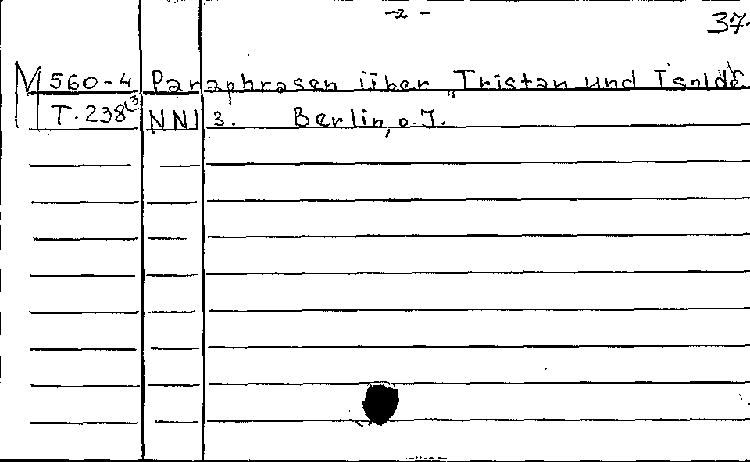 -2-
37.
M 560-4 Paraphrasen über „Tristan und Isolde"
T. 238(3 NN 3. Berlin, o. J.